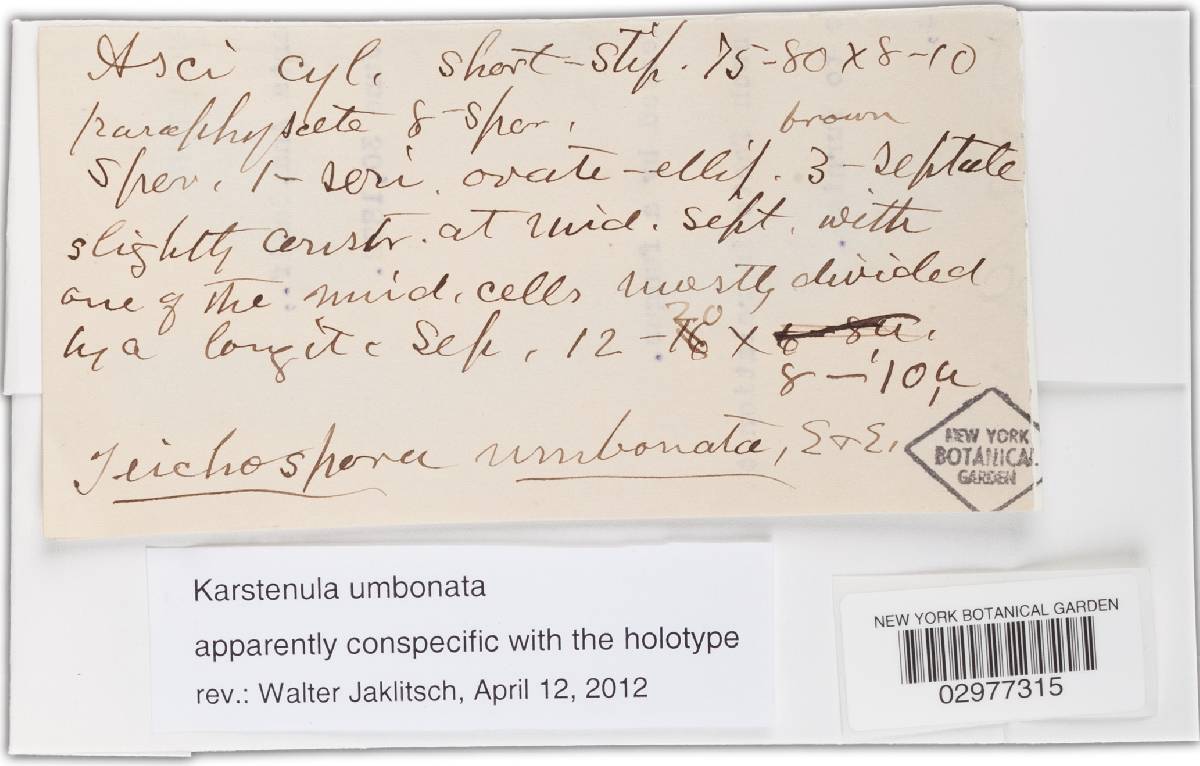 Asci cyl. short-stip. 75-80 X 8-10
paraphysate 8-spor.
brown
Spor. 1-seri. ovate-ellip. 3-septate
slightly constr. at mid. sept. with
one of the mid. cells mostly divided
by a longit. Sep. 12-20 X 6-8µ.
8-10µ
Teichospora umbonata, E&E.
NEW YORK
BOTANICAL
GARDEN
Karstenula umbonata
apparently conspecific with the holotype
rev.: Walter Jaklitsch, April 12, 2012
NEW YORK BOTANICAL GARDEN
02977315